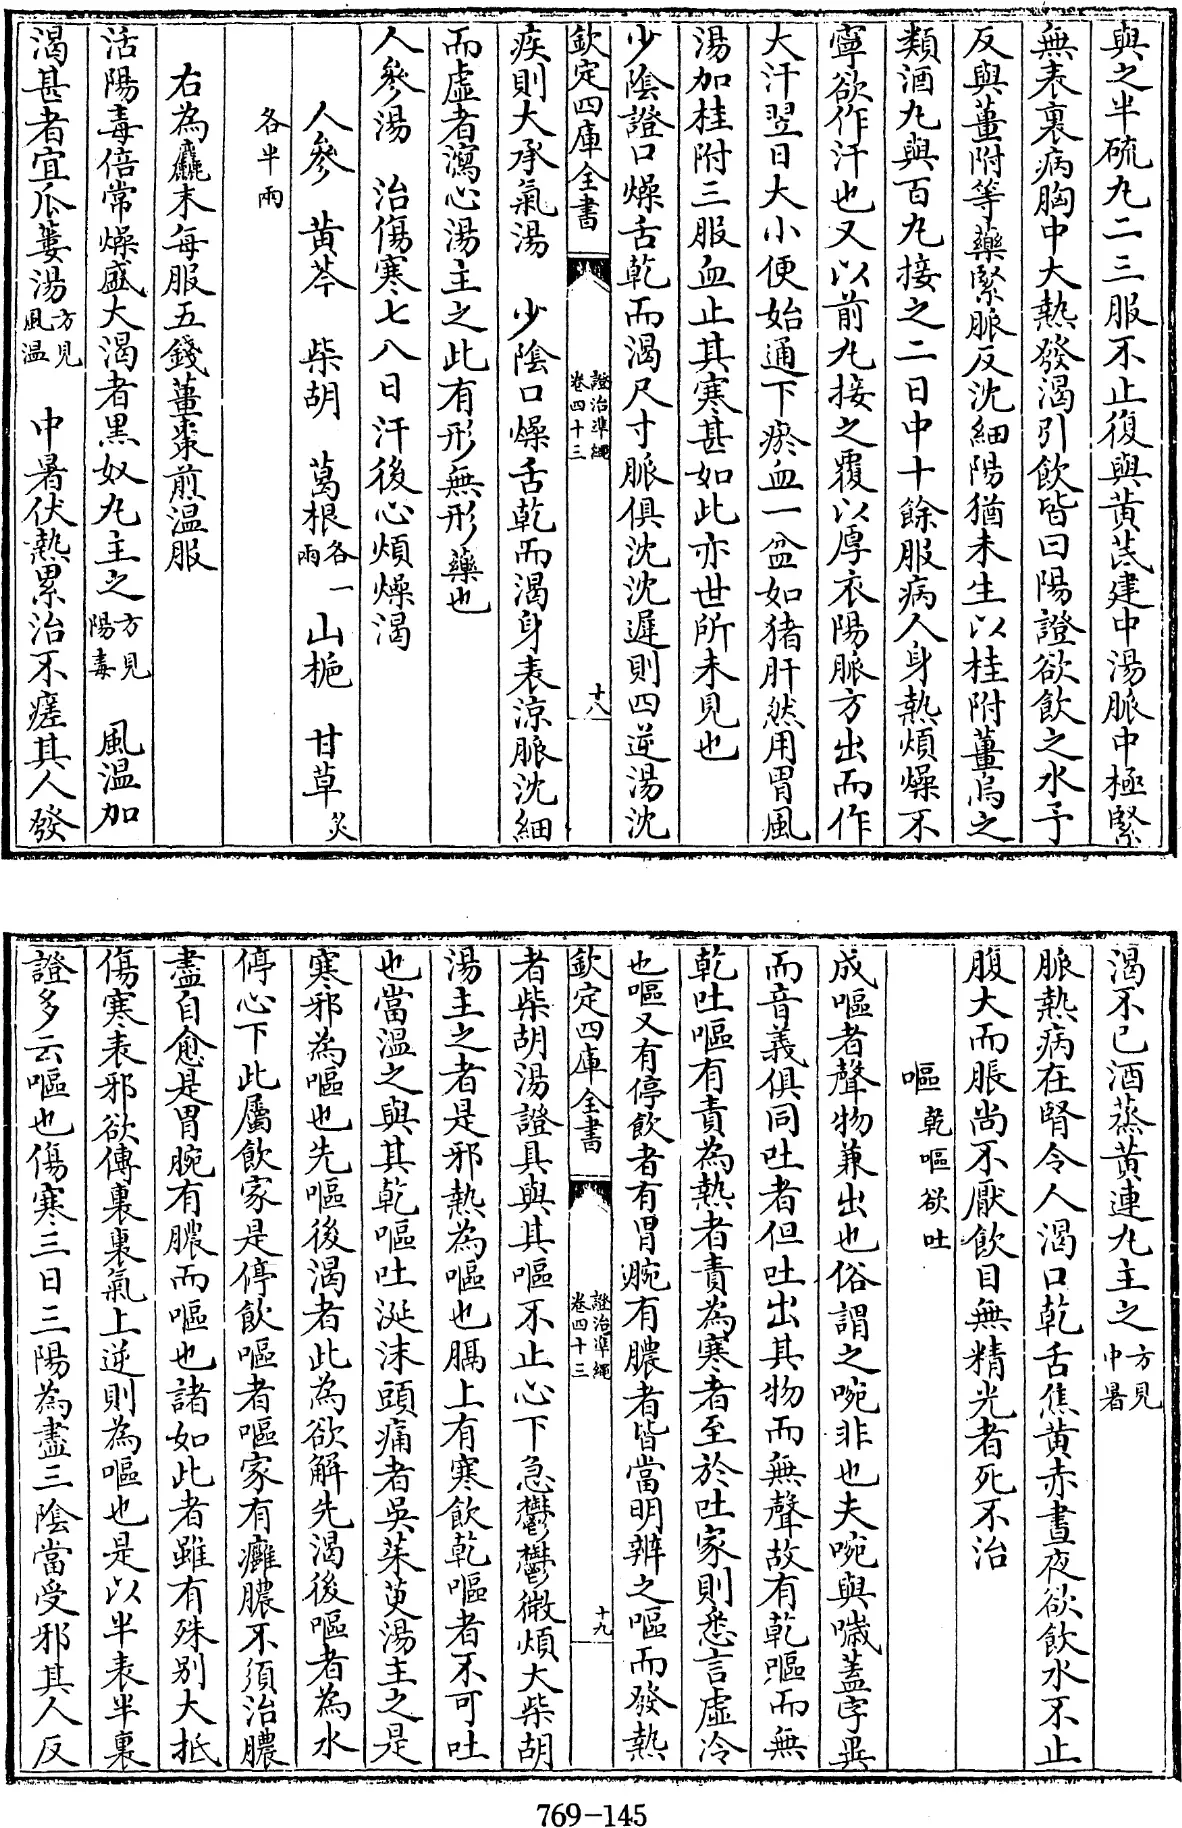 與之半硫丸二三服不止復與黃芪建中湯脈中極緊
無表裏病胸中大熱發渴引飲皆曰陽證欲飲之水予
反與薑附等藥緊脈反沈細陽猶未生以桂附薑烏之
類酒丸與百丸接之二日中十餘服病人身熱煩燥不
寧欲作汗也又以前丸接之覆以厚衣陽脈方出而作
大汗翌日大小便始通下瘀血一盆如猪肝然用胃風
湯加桂附三服血止其寒甚如此亦世所未見也
少陰證口燥舌乾而渴尺寸脈俱沈沈遲則四逆湯沈
欽定四庫全書
證治準繩
卷四十三
十八
疾則大承氣湯　少陰口燥舌乾而渴身表涼脈沈細
而虛者瀉心湯主之此有形無形藥也
人參湯　治傷寒七八日汗後心煩燥渴
人參　黃芩　柴胡　葛根各一兩　山梔　甘草炙
各半兩
右為麤末每服五錢薑棗煎溫服
活陽毒倍常燥盛大渴者黑奴丸主之方見陽毒　風溫加
渴甚者宜瓜蔞湯方見風溫　中暑伏熱累治不瘥其人發
渴不已酒蒸黃連丸主之方見中暑
脈熱病在腎令人渴口乾舌焦黃赤晝夜欲飲水不止
腹大而脹尚不厭飲目無精光者死不治
嘔乾嘔欲吐
成嘔者聲物兼出也俗謂之啘非也夫啘與噦蓋字異
而音義俱同吐者但吐出其物而無聲故有乾嘔而無
乾吐嘔有責為熱者責為寒者至於吐家則悉言虛冷
也嘔又有停飲者有胃脘有膿者皆當明辨之嘔而發熱
欽定四庫全書
證治準繩
卷四十三
十九
者柴胡湯證具與其嘔不止心下急鬱鬱微煩大柴胡
湯主之者是邪熱為嘔也膈上有寒飲乾嘔者不可吐
也當溫之與其乾嘔吐涎沫頭痛者吳茱萸湯主之是
寒邪為嘔也先嘔後渴者此為欲解先渴後嘔者為水
停心下此屬飲家是停飲嘔者嘔家有癰膿不須治膿
盡自愈是胃脘有膿而嘔也諸如此者雖有殊別大抵
傷寒表邪欲傳裏裏氣上逆則為嘔也是以半表半裏
證多云嘔也傷寒三日三陽為盡三陰當受邪其人反
769-145